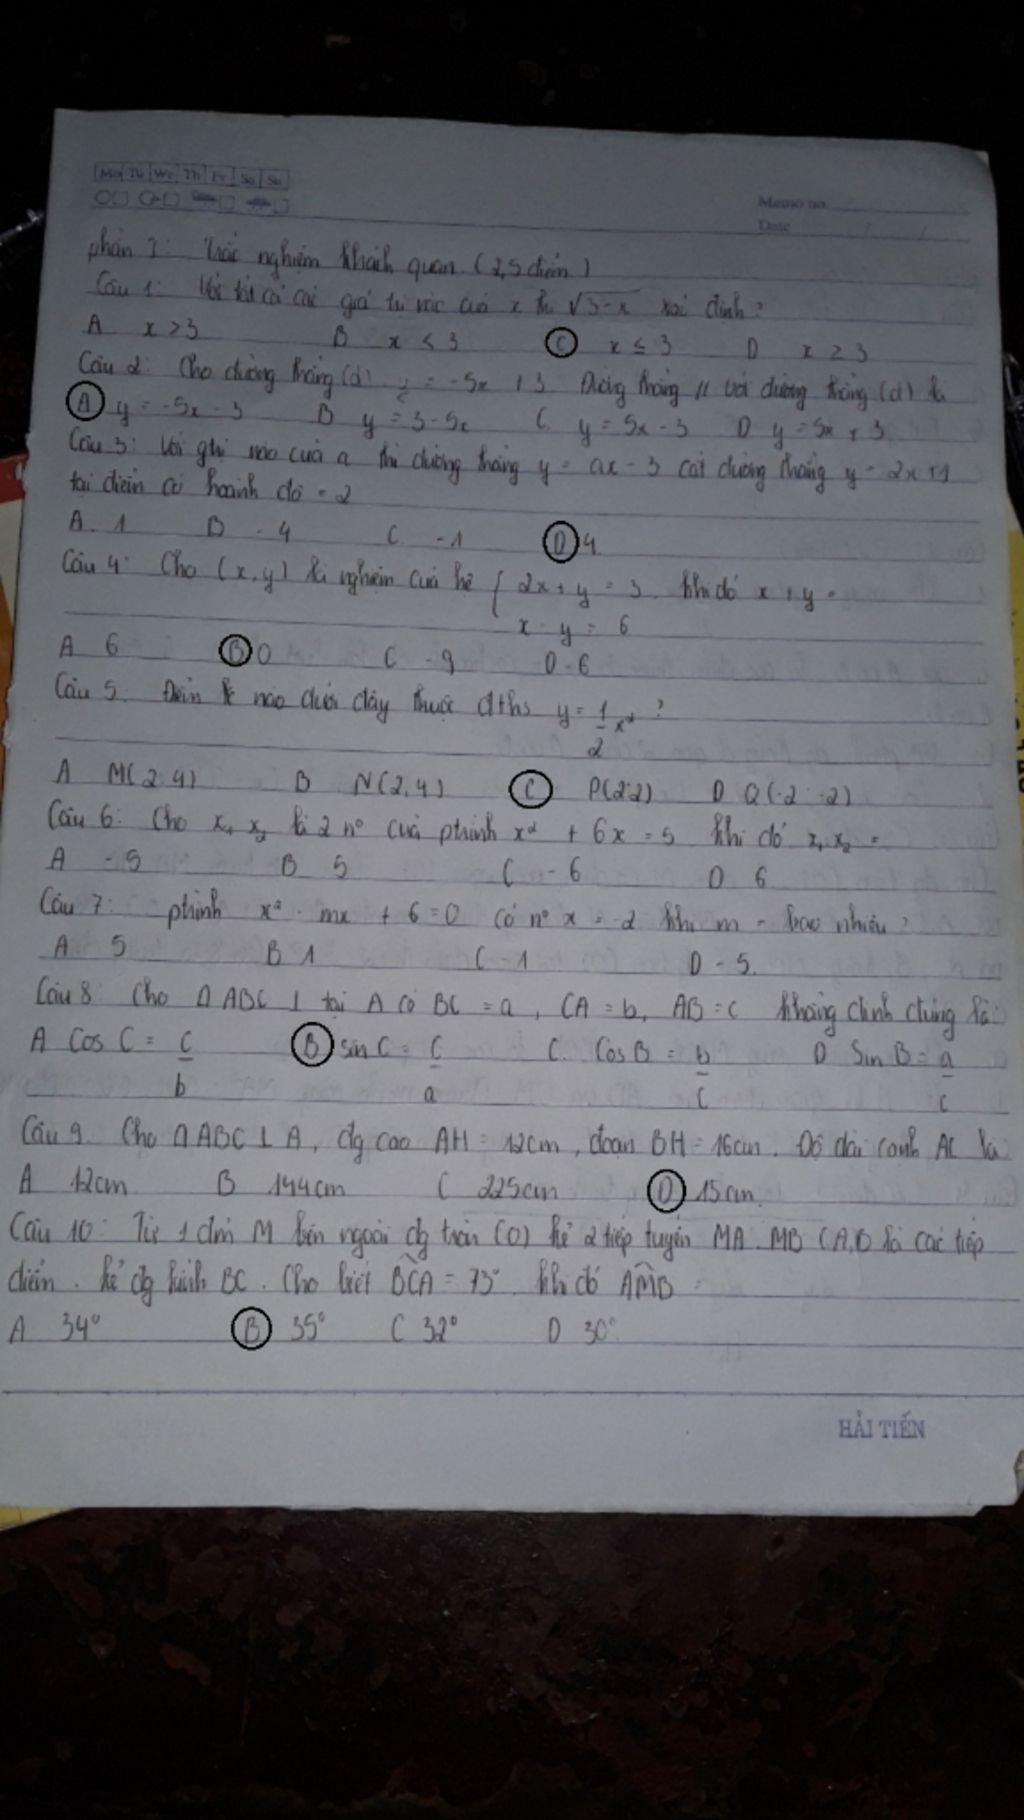 Mo Tu We Th Fr Sa Su
Memo no.
Date
phần I: Trắc nghiệm khách quan (2,5 điểm)
Câu 1: Với tất cả các giá trị nào của x thì √3-x xác định?
A x > 3 B x < 3 C x ≤ 3 D x ≥ 3
Câu 2: Cho đường thẳng (d) y = -5x + 3 Đường thẳng // với đường thẳng (d) là
A y = -5x - 3 B y = 3 - 5x C. y = 5x - 3 D y = 5x + 3
Câu 3: Với gtrị nào của a thì đường thẳng y = ax - 3 cắt đường thẳng y = 2x + 1
tại điểm có hoành độ = 2
A. 1 B - 4 C. -1 D 4.
Câu 4: Cho (x, y) là nghiệm của hệ { 2x + y = 3. khi đó x + y =
x - y = 6
A 6 B 0 C -9 D -6
Câu 5. Điểm nào dưới đây thuộc đths y = 1/2 x² ?
A M(2;4) B N(2,4) C P(2;2) D Q(-2 -2)
Câu 6: Cho x₁ x₂ là 2 nº của ptrình x² + 6x = 5 khi đó x₁ x₂ =
A -5 B 5 C -6 D 6
Câu 7: ptrình x² - mx + 6 = 0 có nº x = -2 khi m = bao nhiêu?
A 5 B 1 C -1 D -5.
Câu 8: Cho Δ ABC ⊥ tại A có BC = a, CA = b, AB = c khẳng định đúng là:
A Cos C = c/b B sin C = c/a C. Cos B = b/c D Sin B = a/c
Câu 9. Cho Δ ABC ⊥ A, đg cao AH = 12cm, đoạn BH = 16cm. Độ dài cạnh AC là
A 12cm B 144cm C 225cm D 15cm
Câu 10: Từ 1 điểm M bên ngoài đg tròn (O) kẻ 2 tiếp tuyến MA. MB (A,B là các tiếp
điểm. kẻ đg kính BC. Cho biết BCA = 73° khi đó AMB =
A 34° B 35° C 32° D 30°
HẢI TIẾN